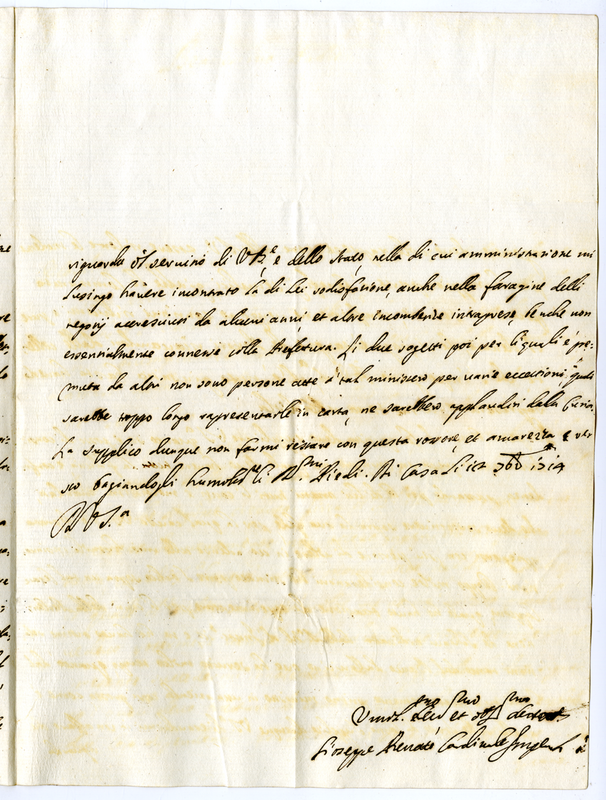 riguarda il servitio di V. B.ne e dello stato, nella di cui amministrazione mi
lusingo havere incontrato la di Lei sodisfazione, anche nella faragine delli
negotij accresciuti da alcuni anni, et altre incombenze intraprese, benche non
essenzialmente connesse colla Prefettura. Li due sogetti poi per li quali è pre=
muta da altri non sono persone atte à tal ministero per varie eccettioni quali
sarebbe troppo longo rapresentarle in carta, ne sarebbero applauditi dalla Curia.
La supplico dunque non farmi restare con questo rossore, et amarezza e
bagiandogli humilm.te li S.mi Piedi. Di Casa li
D V. S.à
Giuseppe Renato Cardinale